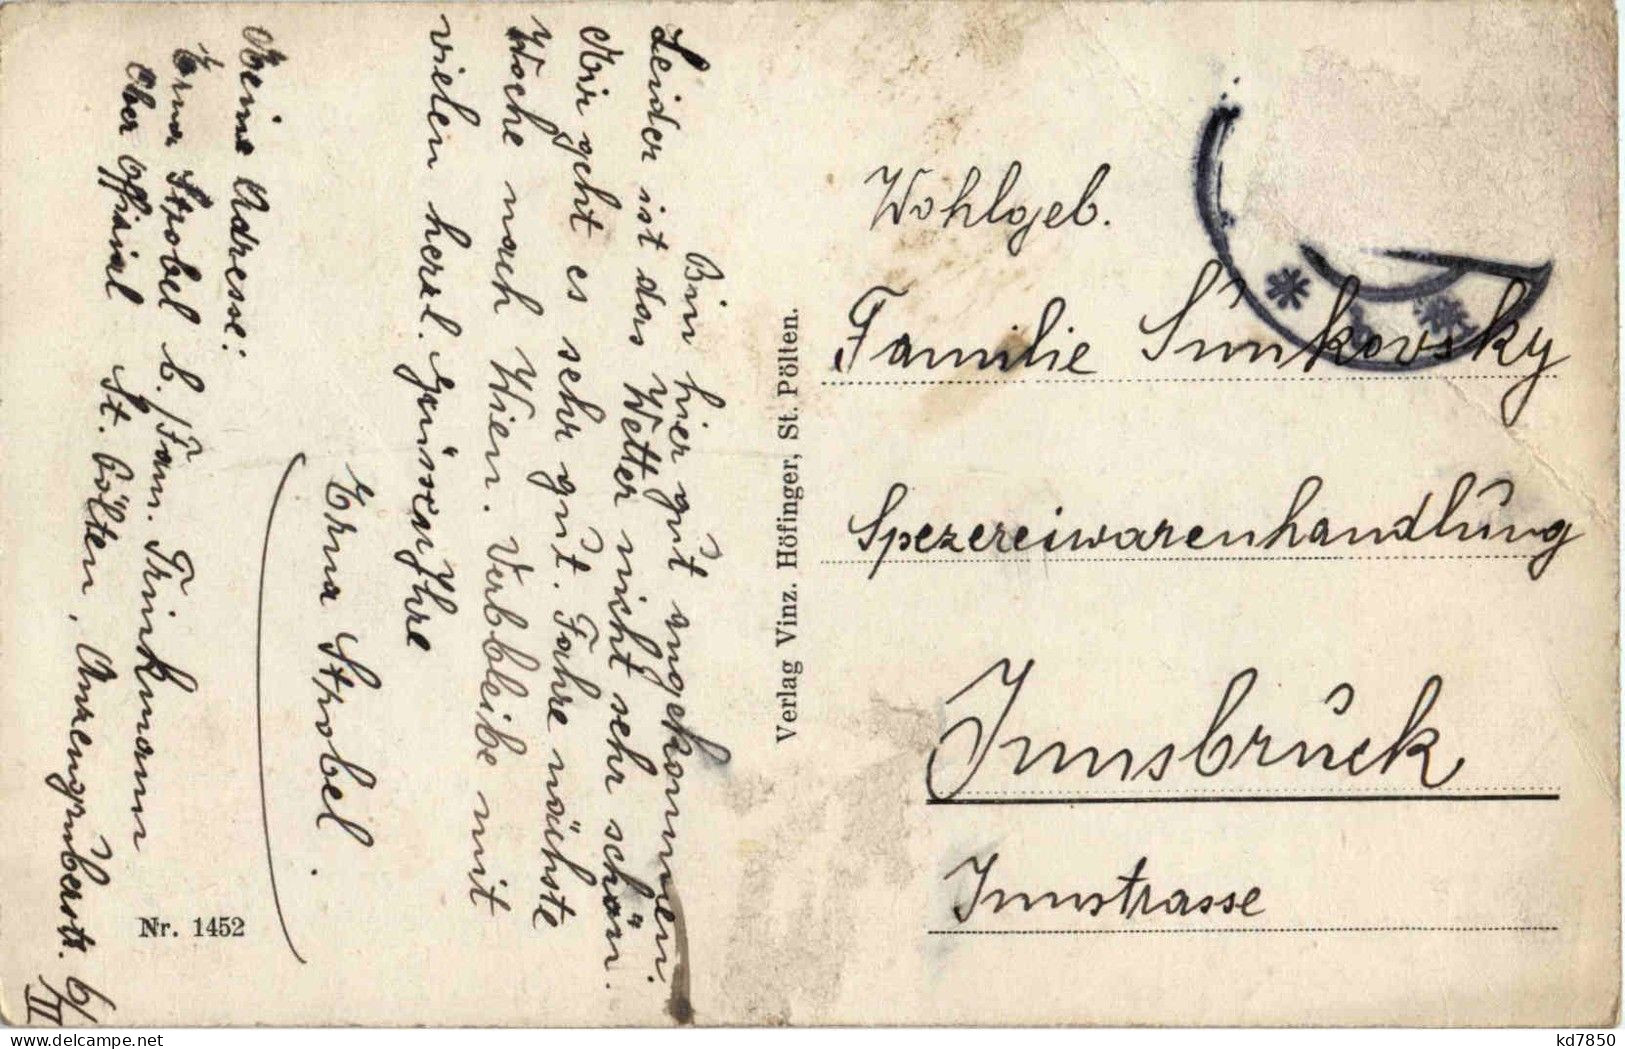 Bin hier gut angekommen.
Leider ist das Wetter nicht sehr schön.
Mir geht es sehr gut. Fahre nächste
Woche nach Wien. Verbbleibe mit
vielen herzl. Grüssen Ihre
Erna Strobel.
Meine Adresse:
Erna Strobel b. Fam. Trinkmann
Ober Offizial St. Pölten, Anzengruberstr. 6/
II
Nr. 1452
Verlag Vinz. Höfinger, St. Pölten.
Wohlgeb.
Familie Sunkovsky
Spezereiwarenhandlung
Innsbruck
Innstrasse
delcampe.net
kd7850